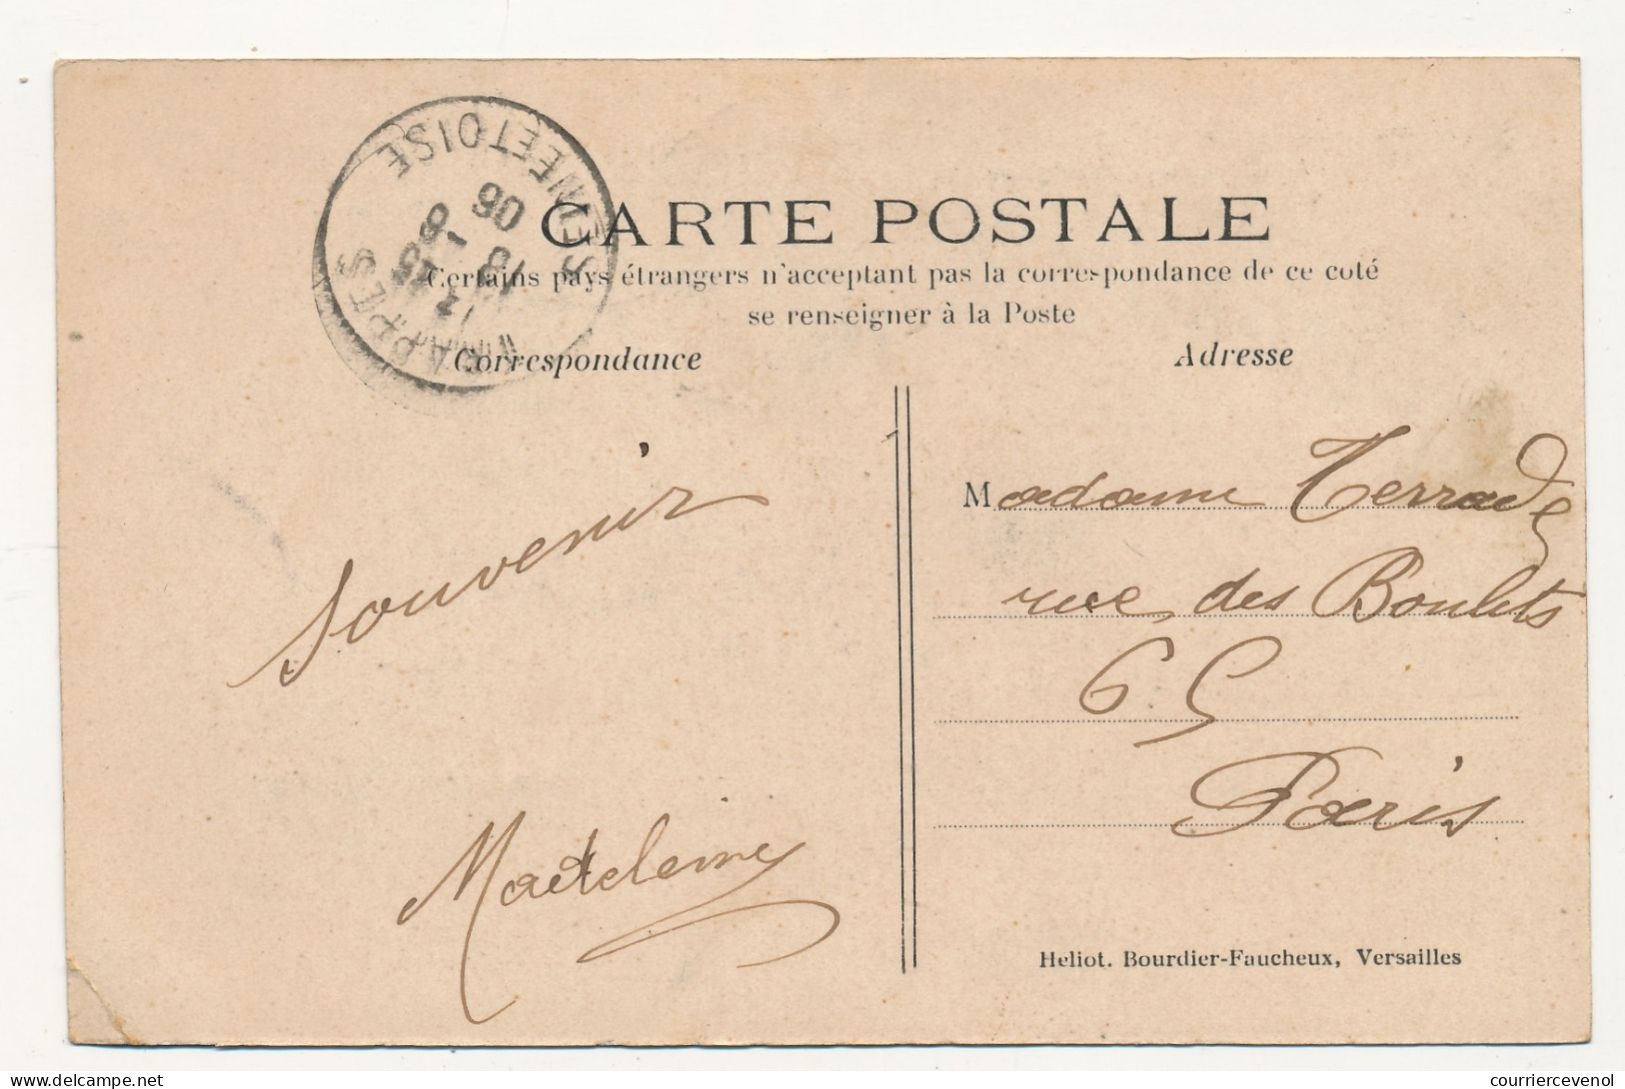 CARTE POSTALE
Certains pays étrangers n'acceptent pas la correspondance de ce coté
se renseigner à la Poste
Correspondance
Adresse
TRAPPES
SEINE ET OISE
18
06
Souvenir
Madeleine
Madame Terrade
rue des Boulets
65
Paris
Heliot. Bourdier-Faucheux, Versailles
courriercevenol